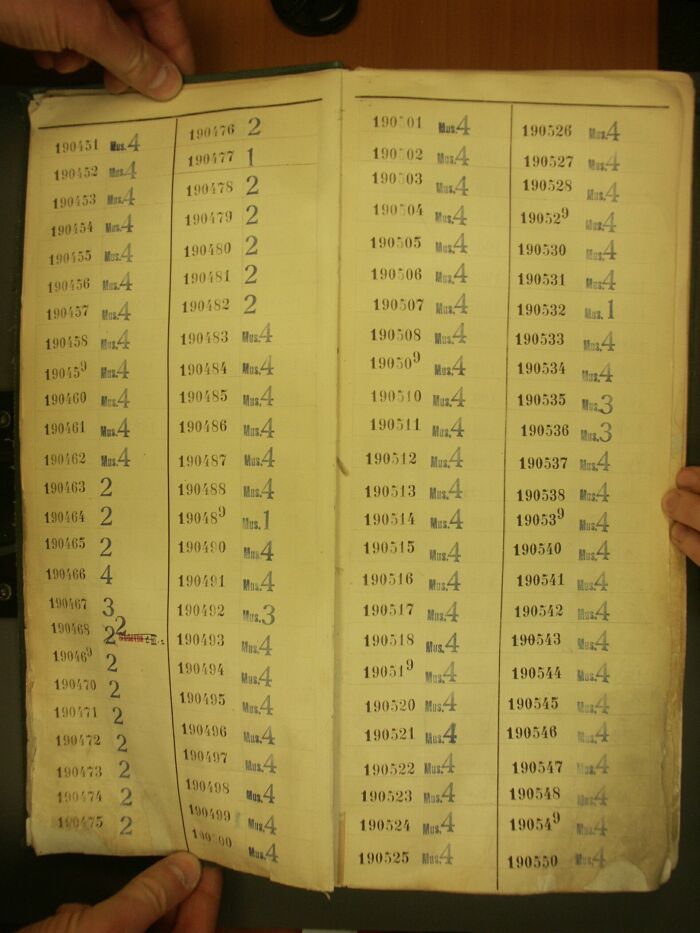 190451 Mus.4
190452 Mus.4
190453 Mus.4
190454 Mus.4
190455 Mus.4
190456 Mus.4
190457 Mus.4
190458 Mus.4
190459 Mus.4
190460 Mus.4
190461 Mus.4
190462 Mus.4
190463 2
190464 2
190465 2
190466 4
190467 3
190468 2 2
190469 2
190470 2
190471 2
190472 2
190473 2
190474 2
190475 2
190476 2
190477 1
190478 2
190479 2
190480 2
190481 2
190482 2
190483 Mus.4
190484 Mus.4
190485 Mus.4
190486 Mus.4
190487 Mus.4
190488 Mus.4
190489 Mus.1
190490 Mus.4
190491 Mus.4
190492 Mus.3
190493 Mus.4
190494 Mus.4
190495 Mus.4
190496 Mus.4
190497 Mus.4
190498 Mus.4
190499 Mus.4
190500 Mus.4
190501 Mus.4
190502 Mus.4
190503 Mus.4
190504 Mus.4
190505 Mus.4
190506 Mus.4
190507 Mus.4
190508 Mus.4
190509 Mus.4
190510 Mus.4
190511 Mus.4
190512 Mus.4
190513 Mus.4
190514 Mus.4
190515 Mus.4
190516 Mus.4
190517 Mus.4
190518 Mus.4
190519 Mus.4
190520 Mus.4
190521 Mus.4
190522 Mus.4
190523 Mus.4
190524 Mus.4
190525 Mus.4
190526 Mus.4
190527 Mus.4
190528 Mus.4
190529 Mus.4
190530 Mus.4
190531 Mus.4
190532 Mus.1
190533 Mus.4
190534 Mus.4
190535 Mus.3
190536 Mus.3
190537 Mus.4
190538 Mus.4
190539 Mus.4
190540 Mus.4
190541 Mus.4
190542 Mus.4
190543 Mus.4
190544 Mus.4
190545 Mus.4
190546 Mus.4
190547 Mus.4
190548 Mus.4
190549 Mus.4
190550 Mus.4